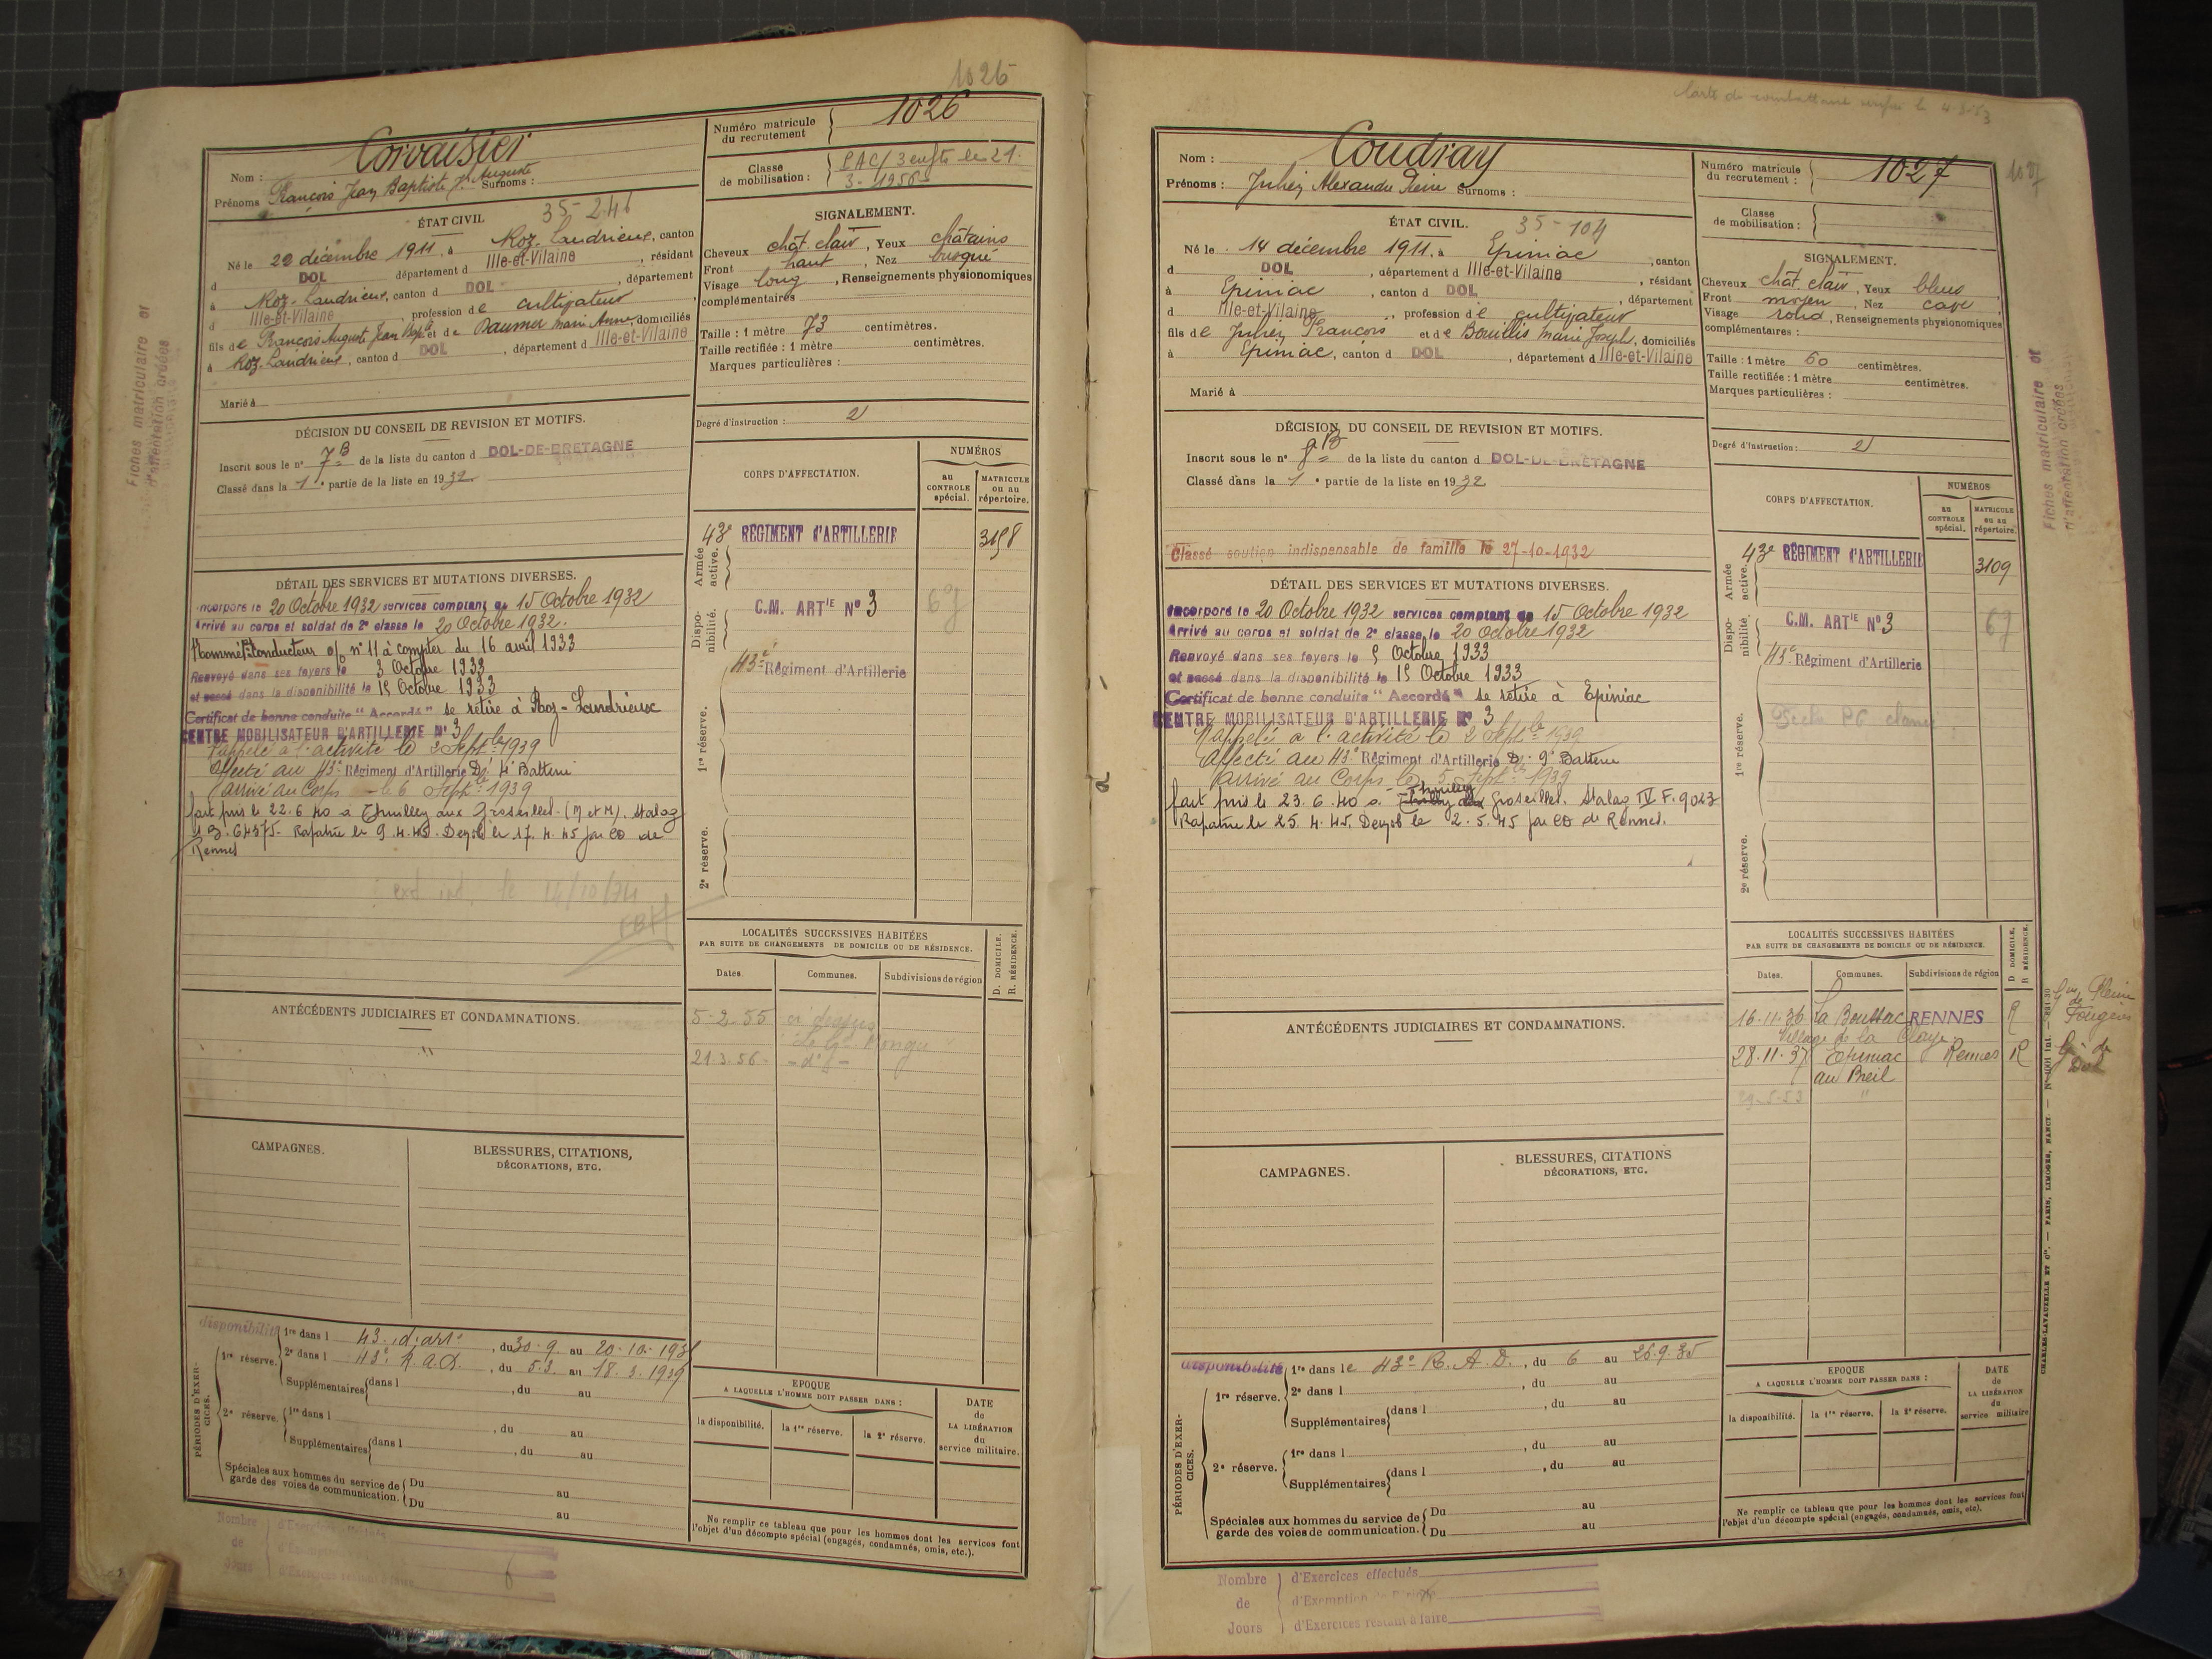 1026
Corvaisier
Nom :
Prénoms François Jean Baptiste Auguste
Surnoms :
Numéro matricule du recrutement
1026
Classe de mobilisation :
PAC/3 enfts le 21.
3-1956
ÉTAT CIVIL
35-246
Né le 22 décembre 1911, à Roz-Landrieux, canton
d DOL département d Ille-et-Vilaine, résidant
à Roz-Landrieux, canton d DOL, département
d Ille-et-Vilaine, profession de cultivateur,
fils de François Auguste Jean Bapte et de Daumer Marie Anne, domiciliés
à Roz-Landrieux, canton d DOL, département d Ille-et-Vilaine
Marié à
SIGNALEMENT.
Cheveux chât. clair, Yeux châtains
Front haut, Nez busqué
Visage long, Renseignements physionomiques
complémentaires
Taille : 1 mètre 73 centimètres.
Taille rectifiée : 1 mètre centimètres.
Marques particulières :
Degré d'instruction : 2
DÉCISION DU CONSEIL DE REVISION ET MOTIFS.
Inscrit sous le n° 7B de la liste du canton d DOL-DE-BRETAGNE
Classé dans la 1e partie de la liste en 1932
CORPS D'AFFECTATION.
NUMÉROS
au CONTROLE spécial.
MATRICULE ou au répertoire.
Armée active.
43e RÉGIMENT D'ARTILLERIE
3198
Disponibilité.
C.M. ARTIE N° 3
67
1re réserve.
43e Régiment d'Artillerie
2e réserve.
DÉTAIL DES SERVICES ET MUTATIONS DIVERSES.
Incorporé le 20 Octobre 1932 services comptant du 15 Octobre 1932
Arrivé au corps et soldat de 2e classe le 20 Octobre 1932.
Nommé 1er Conducteur o/o n° 11 à compter du 16 avril 1933
Renvoyé dans ses foyers le 3 Octobre 1933
et passé dans la disponibilité le 15 Octobre 1933
Certificat de bonne conduite "Accordé" se retire à Roz-Landrieux
CENTRE MOBILISATEUR D'ARTILLERIE N° 3
Rappelé à l'activité le 2 Septbre 1939
Affecté au 43e Régiment d'Artillerie D. 4e Batterie
arrivé au Corps le 6 Septbre 1939
fait pris le 22.6.40 à Thuilley aux Groseilles (M et M). Stalag
64375. Rapatrié le 9.4.45. Demob le 17.4.45 par CD de
Rennes
le 14/10/74
LOCALITÉS SUCCESSIVES HABITÉES
PAR SUITE DE CHANGEMENTS DE DOMICILE OU DE RÉSIDENCE.
D. DOMICILE.
R. RÉSIDENCE.
Dates.
Communes.
Subdivisions de région
5-2-55 ci dessus
21-3-56 - d° -
ANTÉCÉDENTS JUDICIAIRES ET CONDAMNATIONS.
CAMPAGNES.
BLESSURES, CITATIONS,
DÉCORATIONS, ETC.
PÉRIODES D'EXERCICES.
disponibilité
1re réserve.
1re dans l 43e d'art., du 30-9 au 20-10-1936
2e dans l 43e R.A.D., du 5.3. au 18.3.1939
Supplémentaires dans l , du au
2e réserve.
1re dans l , du au
Supplémentaires dans l , du au
Spéciales aux hommes du service de
garde des voies de communication.
Du au
Du au
EPOQUE
A LAQUELLE L'HOMME DOIT PASSER DANS :
la disponibilité.
la 1re réserve.
la 2e réserve.
DATE
de
LA LIBÉRATION
du
service militaire.
Ne remplir ce tableau que pour les hommes dont les services font
l'objet d'un décompte spécial (engagés, condamnés, omis, etc.).
Nombre de Jours
d'Exercices restant à faire
Fiches matriculaire et
d'affectation créées
Carte du combattant
1027
Nom : Coudray
Prénoms : Julien Alexandre Pierre Surnoms :
Numéro matricule du recrutement :
1027
Classe de mobilisation :
ÉTAT CIVIL.
35-104
Né le 14 décembre 1911, à Epiniac, canton
d DOL, département d Ille-et-Vilaine
à Epiniac, canton d DOL, résidant
d Ille-et-Vilaine, profession de cultivateur, département
fils de Julien François et de Bouillis Marie Joseph, domiciliés
à Epiniac, canton d DOL, département d Ille-et-Vilaine
Marié à
SIGNALEMENT.
Cheveux chât. clair, Yeux bleus
Front moyen, Nez cave
Visage rond, Renseignements physionomiques
complémentaires :
Taille : 1 mètre 60 centimètres.
Taille rectifiée : 1 mètre centimètres.
Marques particulières :
Degré d'instruction : 2
DÉCISION DU CONSEIL DE REVISION ET MOTIFS.
Inscrit sous le n° de la liste du canton d DOL-DE-BRETAGNE
Classé dans la 1e partie de la liste en 1932
Classé soutien indispensable de famille le 27-10-1932
CORPS D'AFFECTATION.
NUMÉROS
au CONTROLE spécial.
MATRICULE ou au répertoire.
Armée active.
43e RÉGIMENT D'ARTILLERIE
3109
Disponibilité.
C.M. ARTIE N° 3
67
1re réserve.
43e Régiment d'Artillerie
2e réserve.
DÉTAIL DES SERVICES ET MUTATIONS DIVERSES.
Incorporé le 20 Octobre 1932 services comptant du 15 Octobre 1932
Arrivé au corps et soldat de 2e classe le 20 Octobre 1932
Renvoyé dans ses foyers le 5 Octobre 1933
et passé dans la disponibilité le 15 Octobre 1933
Certificat de bonne conduite "Accordé" se retire à Epiniac
CENTRE MOBILISATEUR D'ARTILLERIE N° 3
Rappelé à l'activité le 2 Septbre 1939
Affecté au 43e Régiment d'Artillerie D. 9e Batterie
arrivé au Corps le 5 Septbre 1939
fait pris le 23.6.40 à Thuilley aux Groseilles. Stalag IV F. 9023
Rapatrié le 25.4.45. Demob le 2.5.45 par CD de Rennes.
LOCALITÉS SUCCESSIVES HABITÉES
PAR SUITE DE CHANGEMENTS DE DOMICILE OU DE RÉSIDENCE.
D. DOMICILE.
R. RÉSIDENCE.
Dates.
Communes.
Subdivisions de région
16-11-36 La Boussac RENNES R
Village de la Claye
28.11.37 Epiniac Rennes R
au Breil
29-5-53 "
Gie de Pleine Fougères
Gie de Dol
ANTÉCÉDENTS JUDICIAIRES ET CONDAMNATIONS.
CAMPAGNES.
BLESSURES, CITATIONS
DÉCORATIONS, ETC.
PÉRIODES D'EXERCICES.
disponibilité
1re réserve.
1re dans le 43e R.A.D., du 6 au 26.9.35
2e dans l , du au
Supplémentaires dans l , du au
2e réserve.
1re dans l , du au
Supplémentaires dans l , du au
Spéciales aux hommes du service de
garde des voies de communication.
Du au
Du au
EPOQUE
A LAQUELLE L'HOMME DOIT PASSER DANS :
la disponibilité.
la 1re réserve.
la 2e réserve.
DATE
de
LA LIBÉRATION
du
service militaire
Ne remplir ce tableau que pour les hommes dont les services font
l'objet d'un décompte spécial (engagés, condamnés, omis, etc).
Nombre de Jours
d'Exercices effectués
d'Exemption de Période
d'Exercices restant à faire
Fiches matriculaire et
d'affectation créées
CHARLES-LAVAUZELLE ET Cie. — PARIS, LIMOGES, NANCY.